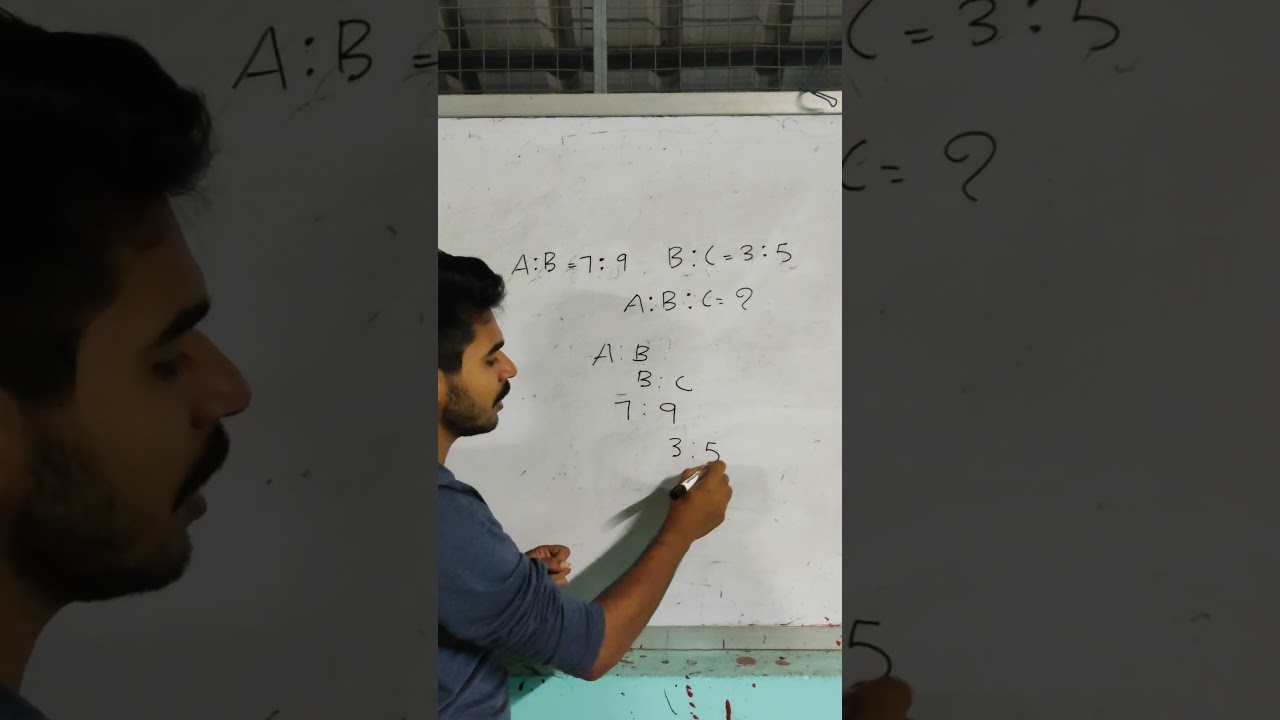 A:B=7:9 B:C=3:5
A:B:C=?
A:B
B:C
7:9
3:5